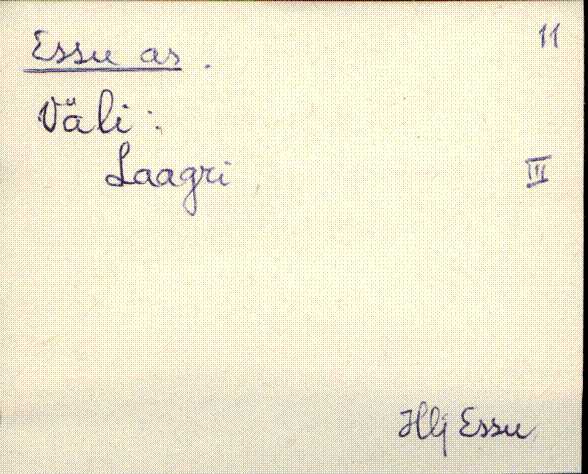 Essu as. 11
Väli:
Laagri III
Hlj Essu